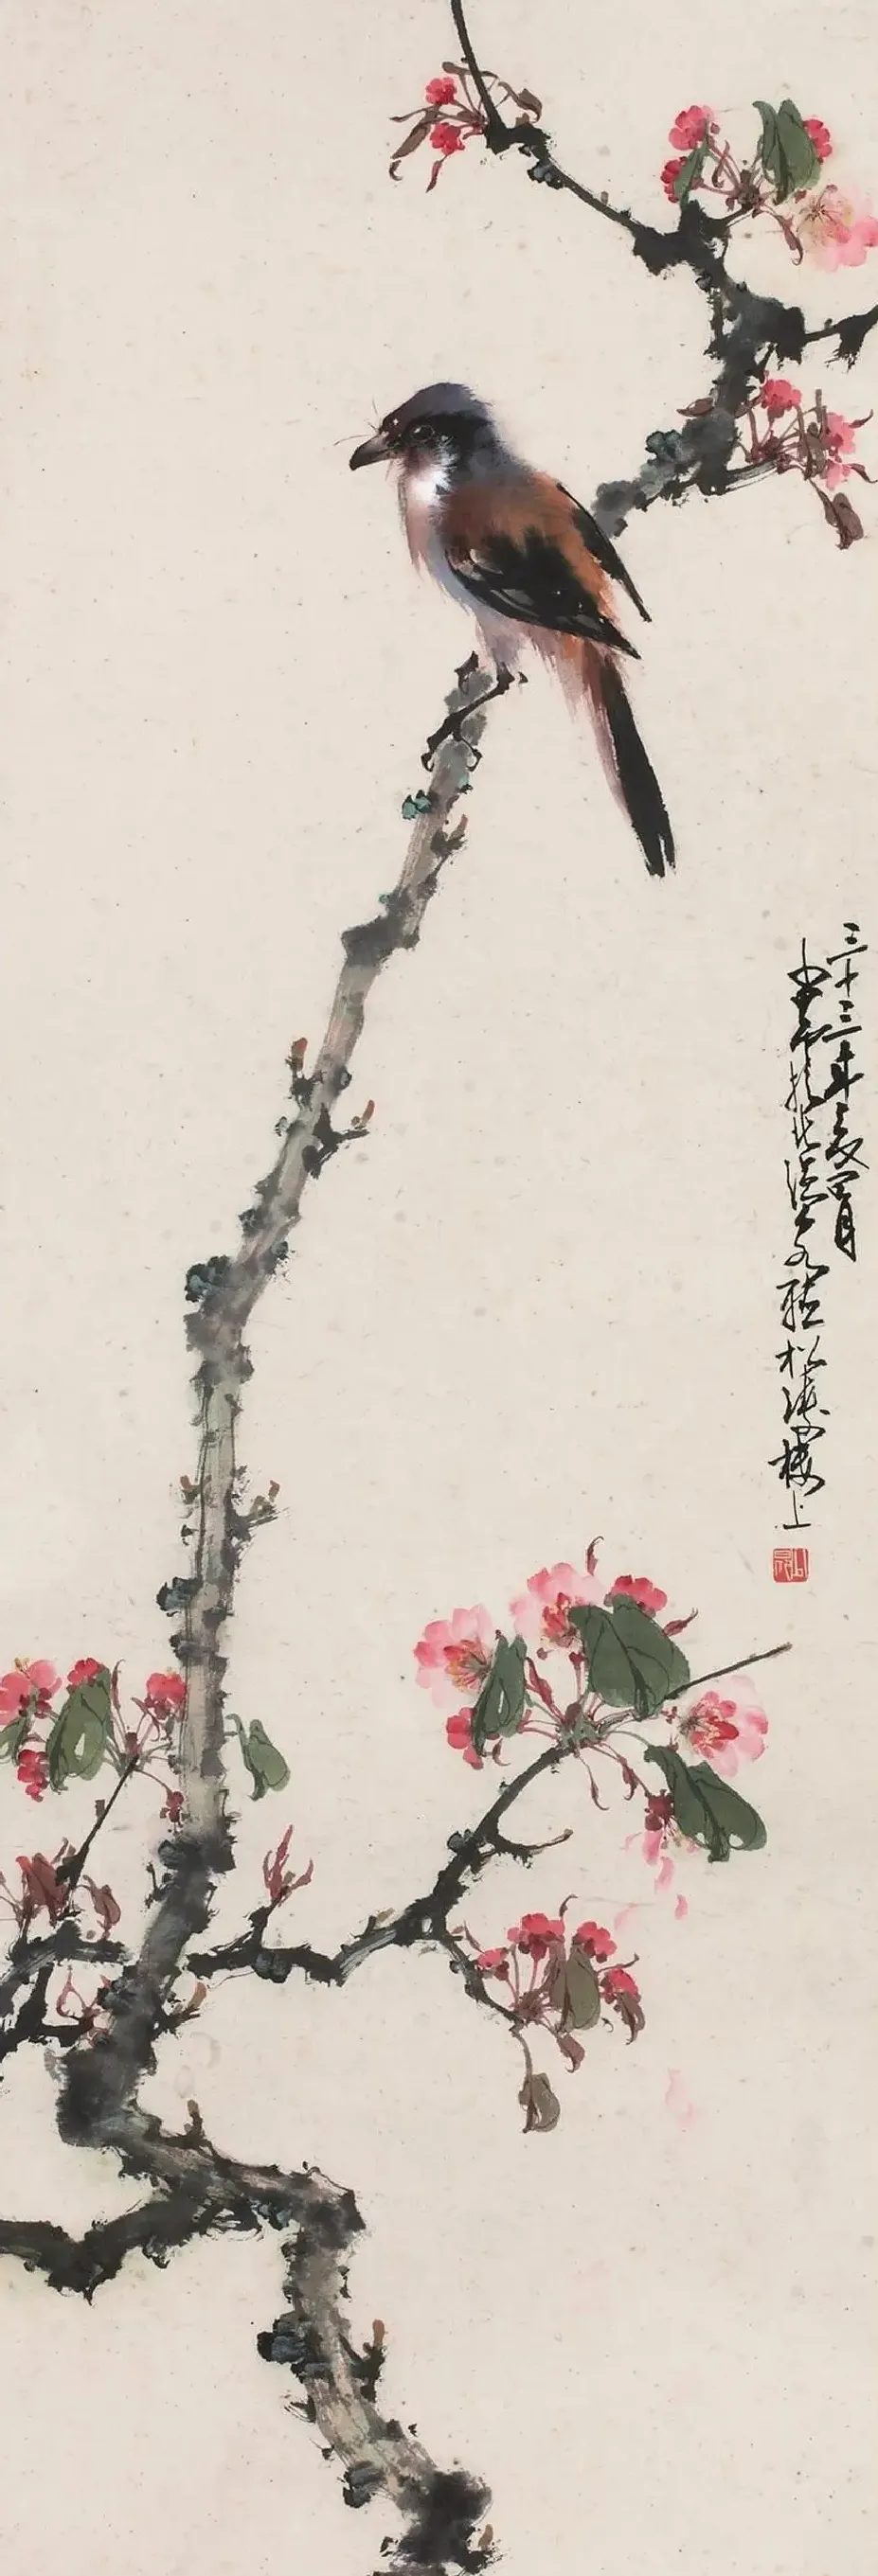 三十三年夏四月
少昂於北溫泉聽松濤樓上